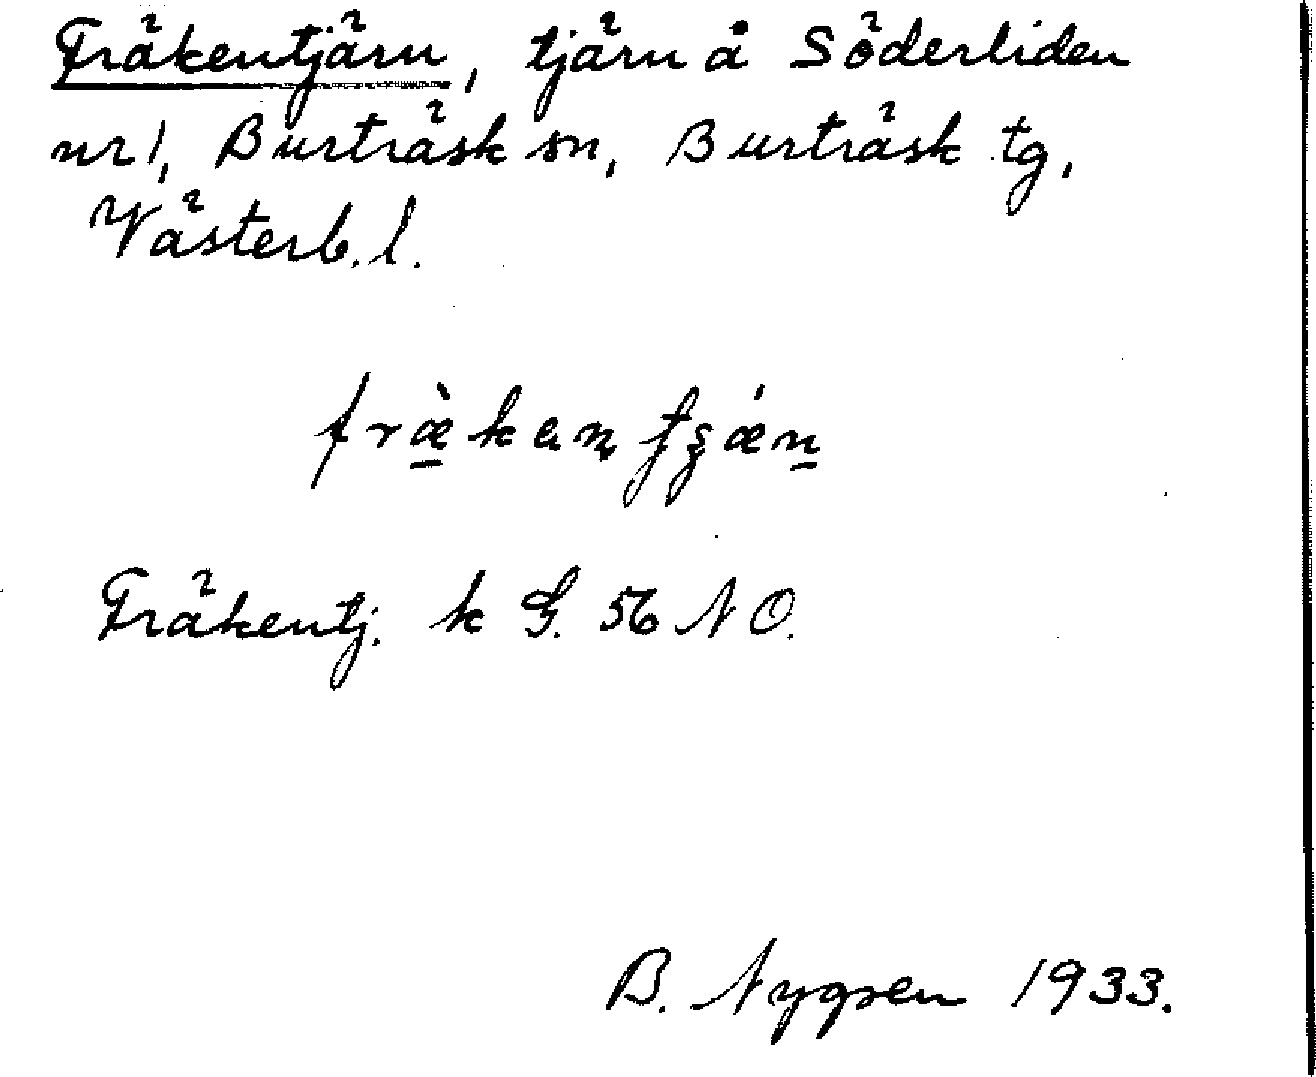 Fräkentjärn, tjärn å Söderliden
nr 1, Burträsk sn, Burträsk tg,
Västerb. l.
fræ̀ken
Fräkentj. k G. 56 NO.
B. Nygren 1933.